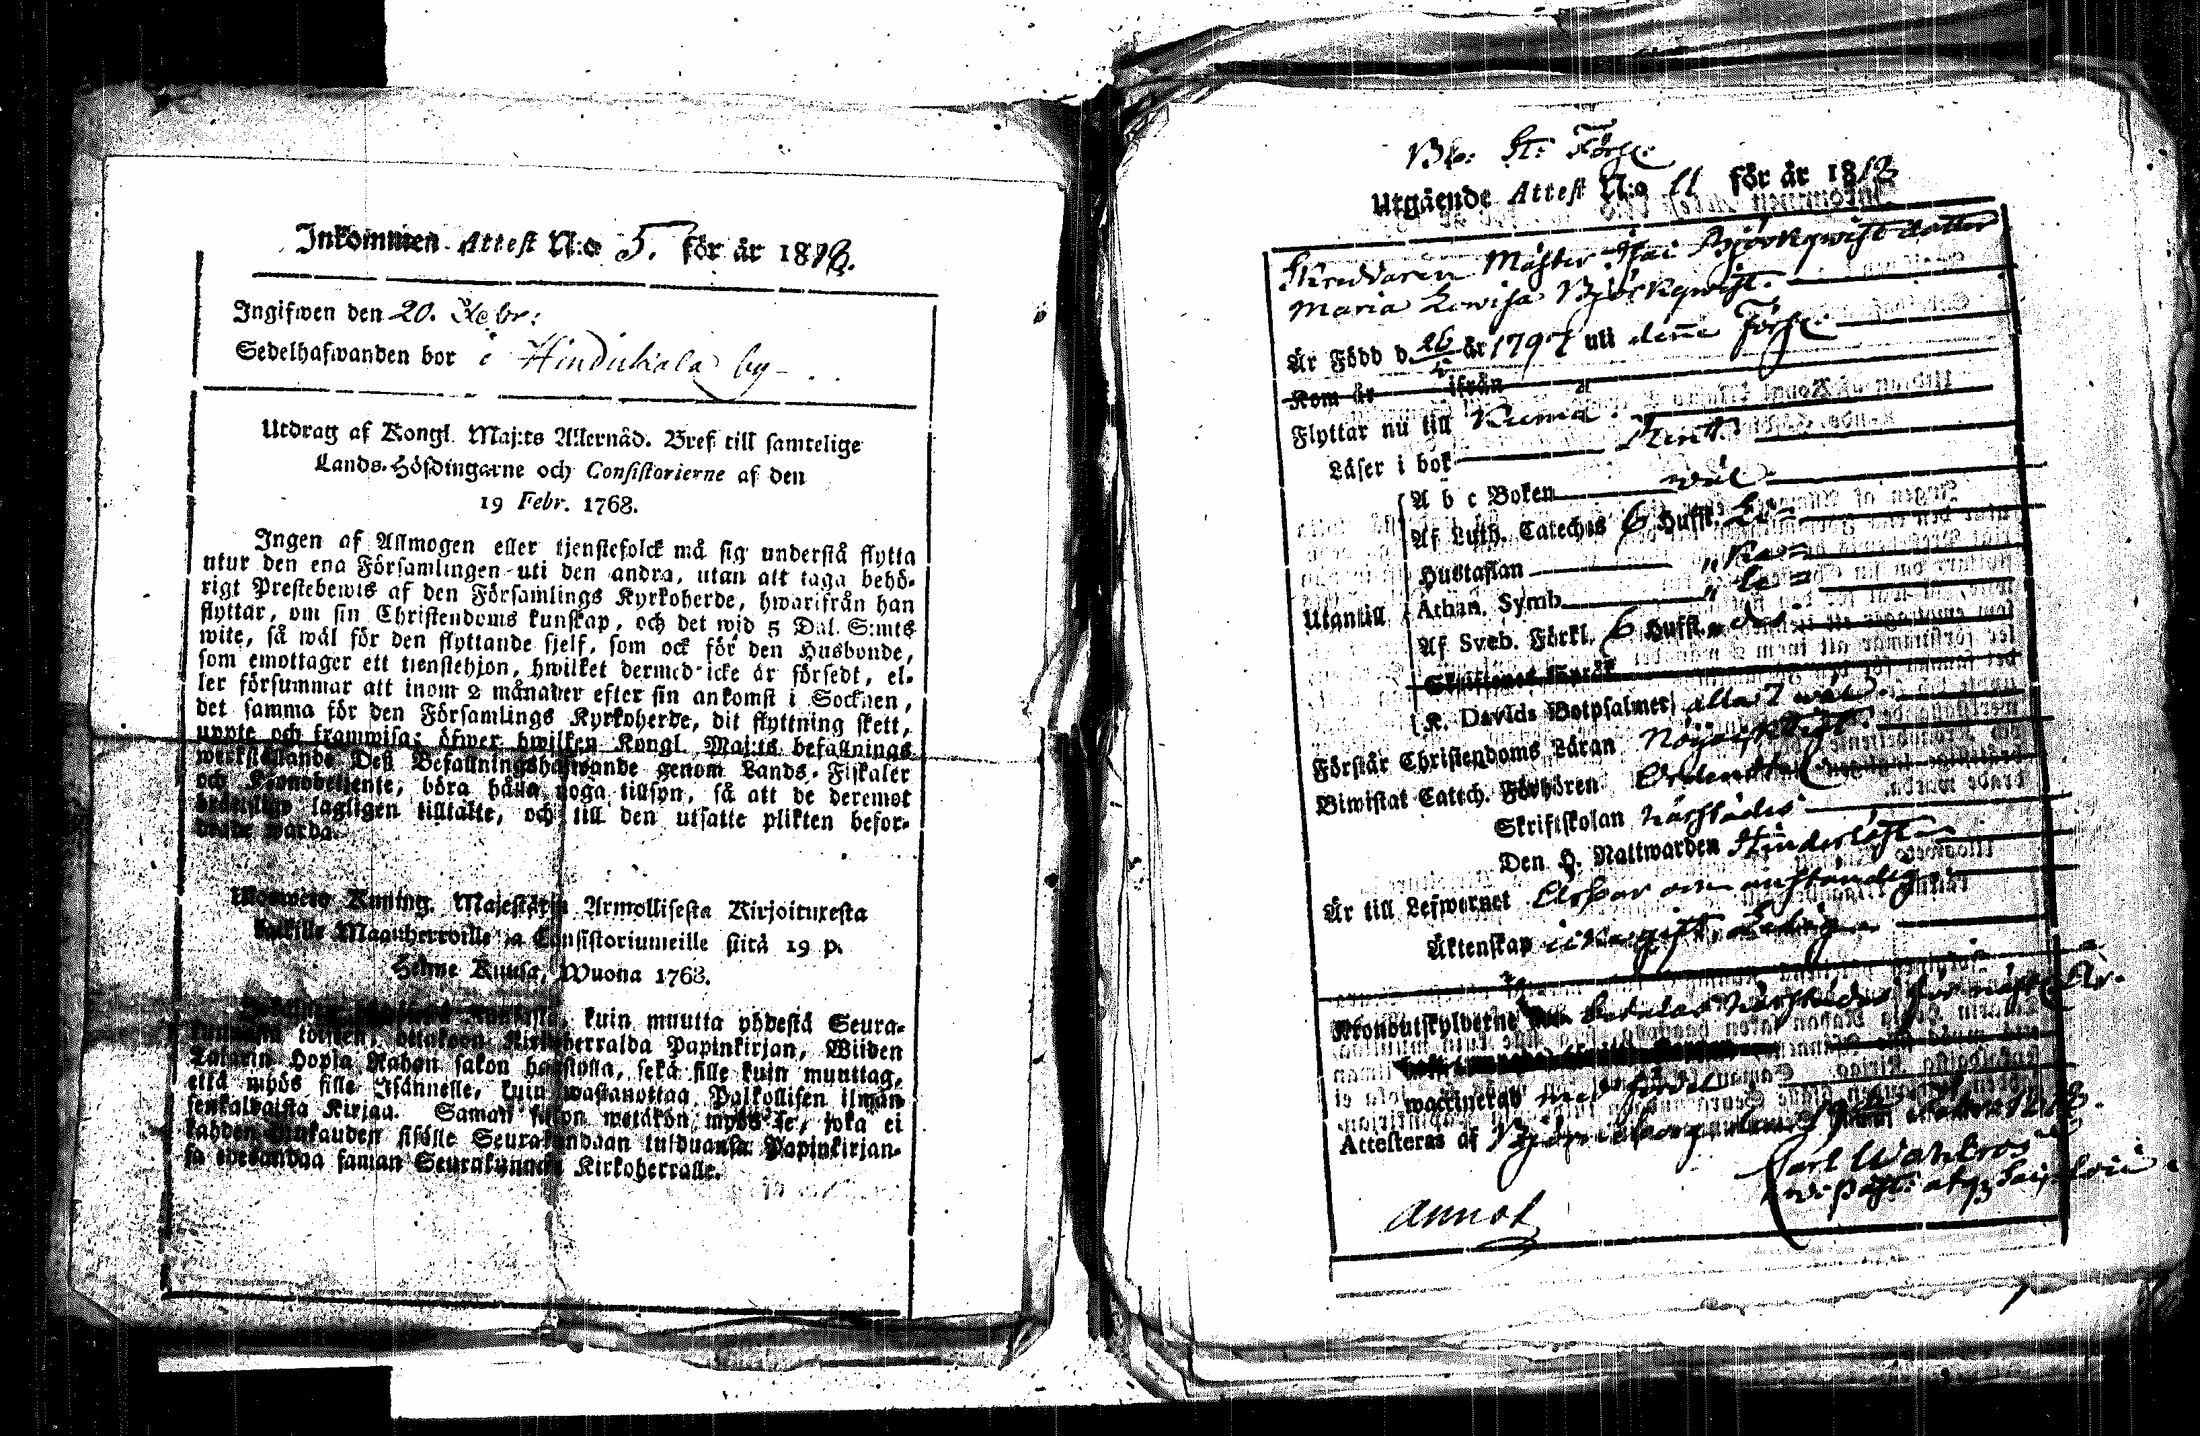 Inkommen Attest N:o 5. för år 1813.
Ingifwen den 20. Febr:
Sedelhafwanden bor i Hinduhiala by
Utdrag af Kongl. Maj:ts Allernåd. Bref till samtelige
Lands-Höfdingarne och Consistorierne af den
19 Febr. 1768.
Ingen af Allmogen eller tjenstefolck må sig understå flytta
utur den ena Församlingen uti den andra, utan att taga behö-
rigt Prestebewis af den Församlings Kyrkoherde, hwarifrån han
flyttar, om sin Christendoms kunskap, och det wid 5 Dal. S:mts
wite, så wäl för den flyttande sjelf, som ock för den Husbonde,
som emottager ett tienstehjon, hwilket dermed icke är försedt, el-
ler försummar att inom 2 månader efter sin ankomst i Socknen,
det samma för den Församlings Kyrkoherde, dit flyttning skett,
uppte och framwisa; öfwer hwilken Kongl. Maj:ts befallnings
werkställande Deß Befallningshafwande genom Lands-Fiskaler
och Kronobetjente, böra hålla noga tillsyn, så att de deremot
lagligen tilltalte, och till den utsatte plikten befor-
drade warda.
Uloswето Kuning. Majestätin Armollisesta Kirjoituxesta
kaikille Maanherroille ja Consistoriumeille siitä 19 p.
Helme Kuusa, Wuona 1768.
kuin muutta yhdestä Seura-
kunnasta toiseen, ottakoon Kirkoherralda Papinkirjan, Wiiden
Talarin Hopia Rahan sakon haastolla, sekä sille kuin muuttaa,
että myös sille Isännelle, kuin wastanottaa Palkollisen ilman
senkaldaista Kirjaa. Saman sakon wetäkön myös se, joka ei
kahden Kukauden sisälle Seurakundaan tulduansa Papinkirjan-
sa edesandaa saman Seurakunnan Kirkoherralle.
Bb: St: Förs:
Utgående Attest N:o 11 för år 1813
Skreddaren Mäster Isai Björkqwist dotter
Maria Lowisa Björkqwist.
Är Född d. 26 år 1797 uti denne Förs:
Kom år ifrån
Flyttar nu till Kumå
Läser i bok Rent
A b c Boken wäl
Af Luth. Cateches 6 Hufst.
Hustaflan
Utantill Athan. Symb.
Af Sveb. Förkl. 6 Hufst. do
Skriftenes språk
K. Davids Botpsalmer alla 7 wäl.
Förstår Christendoms Läran Nöjaktigt
Biwistat Catech. Förhören Ordentel:
Skriftskolan härstädes
Den H. Nattwarden Hinderlöst
Är till Lefwernet Ärbar och anständig
Äktenskap icke gift. Ledig
Kronoutskylderne betalas härstädes för nästa År.
waccinerad med fördel
Attesteras af Björneborg den 19 Febr: 1813.
Carl Wahlroos
Annot